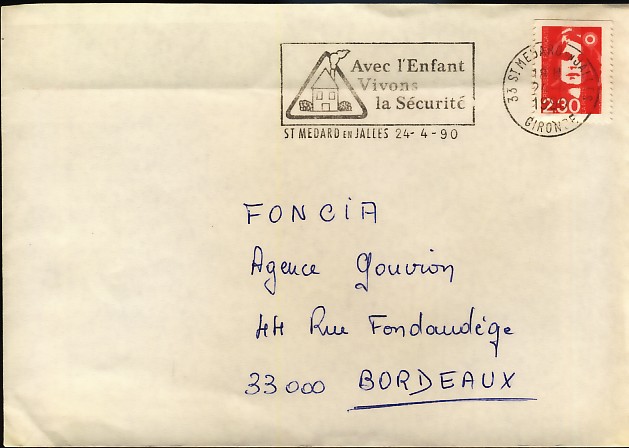 Avec l'Enfant
Vivons
la Sécurité
ST MEDARD EN JALLES 24-4-90
33 ST MEDARD
2.30
GIRONDE
FONCIA
Agence Gouvion
44 Rue Fondaudége
33000 BORDEAUX